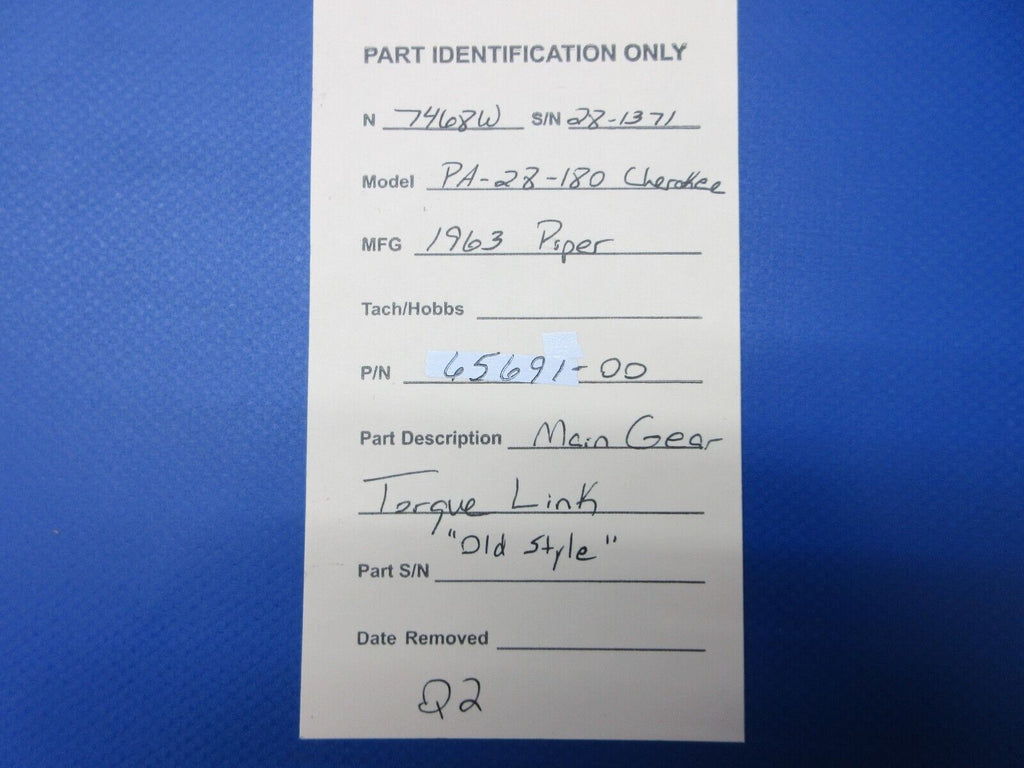 PART IDENTIFICATION ONLY
N 7468W S/N 28-1371
Model PA-28-180 Cherokee
MFG 1963 Piper
Tach/Hobbs
P/N 65691-00
Part Description Main Gear
Torque Link
"Old Style"
Part S/N
Date Removed
Q2